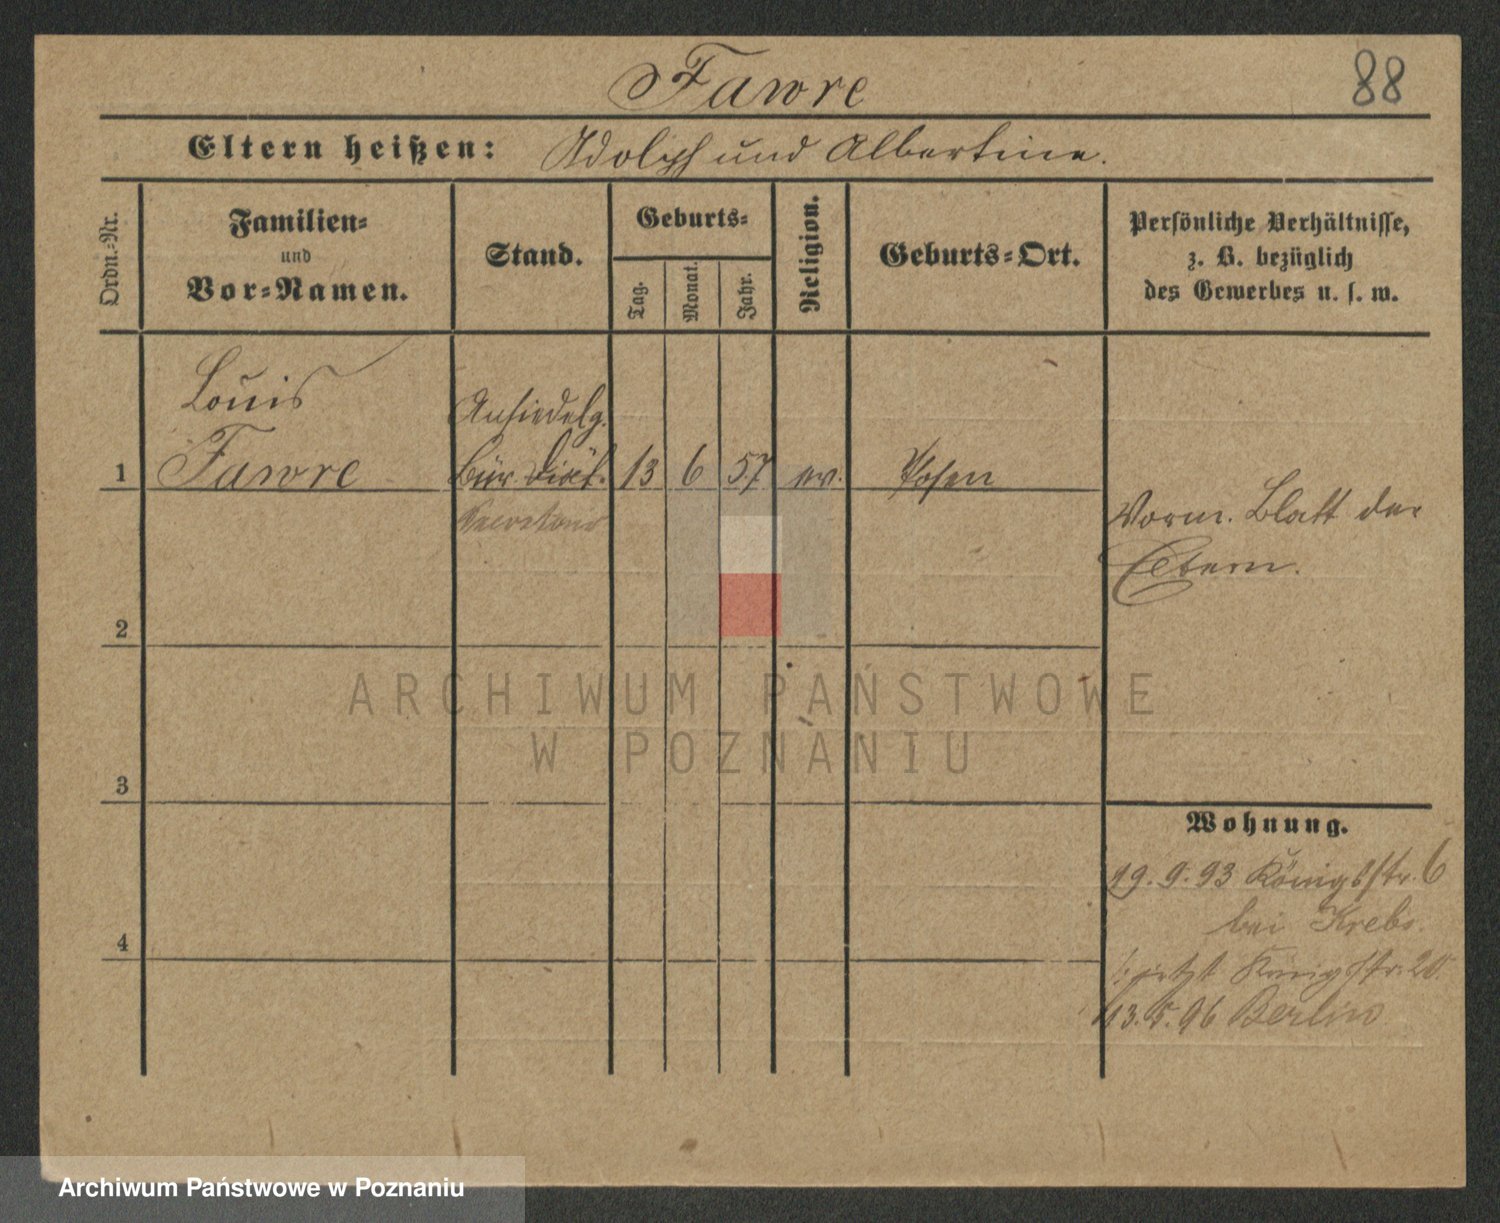 Fawre
88
Eltern heißen: Adolph und Albertine.
Ordn.-Nr.
Familien-
und
Vor-Namen.
Stand.
Geburts-
Tag.
Monat.
Jahr.
Religion.
Geburts-Ort.
Persönliche Verhältnisse,
z. B. bezüglich
des Gewerbes u. s. w.
Louis
Fawre
Ansiedelg.
Bür. Diät.
Secretair
1
13 6 57 ev. Posen
Vorm. Blatt der
Eltern.
2
3
4
Wohnung.
19.9.93 Königsstr. 6
bei Krebs.
jetzt Königsstr. 20.
13.5.96 Berlin
ARCHIWUM PAŃSTWOWE
W POZNANIU
Archiwum Państwowe w Poznaniu